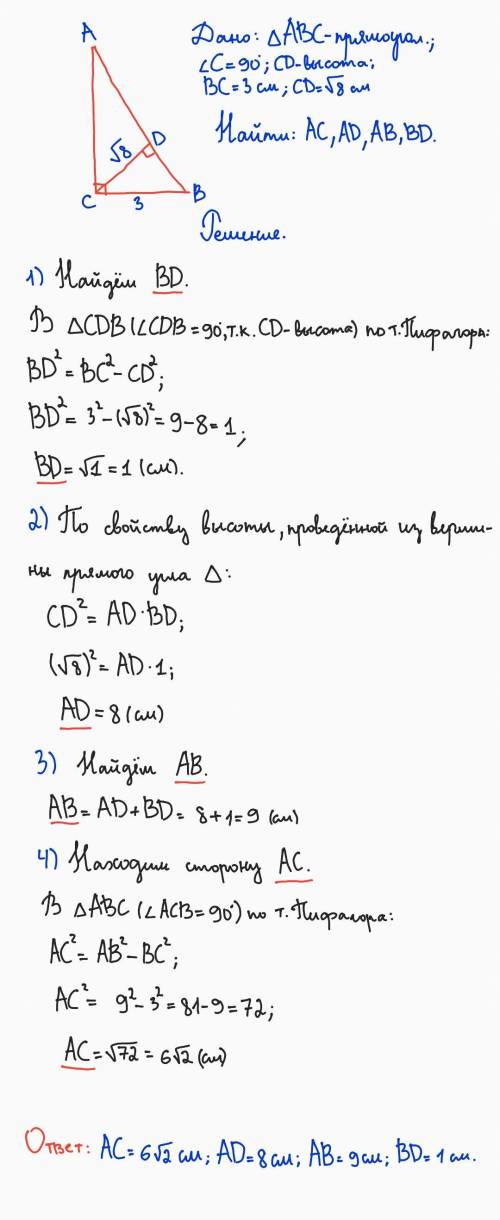 A
Дано: △ABC-прямоугол.;
∠C=90°; CD-высота;
BC=3 см; CD=√8 см
Найти: AC, AD, AB, BD.
√8
D
C
3
B
Решение.
1) Найдём BD.
В △CDB (∠CDB=90°, т.к. CD-высота) по т. Пифагора:
BD²=BC²-CD²;
BD²=3²-(√8)²=9-8=1;
BD=√1=1 (см).
2) По свойству высоты, проведённой из верши-
ны прямого угла △:
CD²=AD·BD;
(√8)²=AD·1;
AD=8 (см)
3) Найдём AB.
AB=AD+BD=8+1=9 (см)
4) Находим сторону AC.
В △ABC (∠ACB=90°) по т. Пифагора:
AC²=AB²-BC²;
AC²=9²-3²=81-9=72;
AC=√72=6√2 (см)
Ответ: AC=6√2 см; AD=8 см; AB=9 см; BD=1 см.